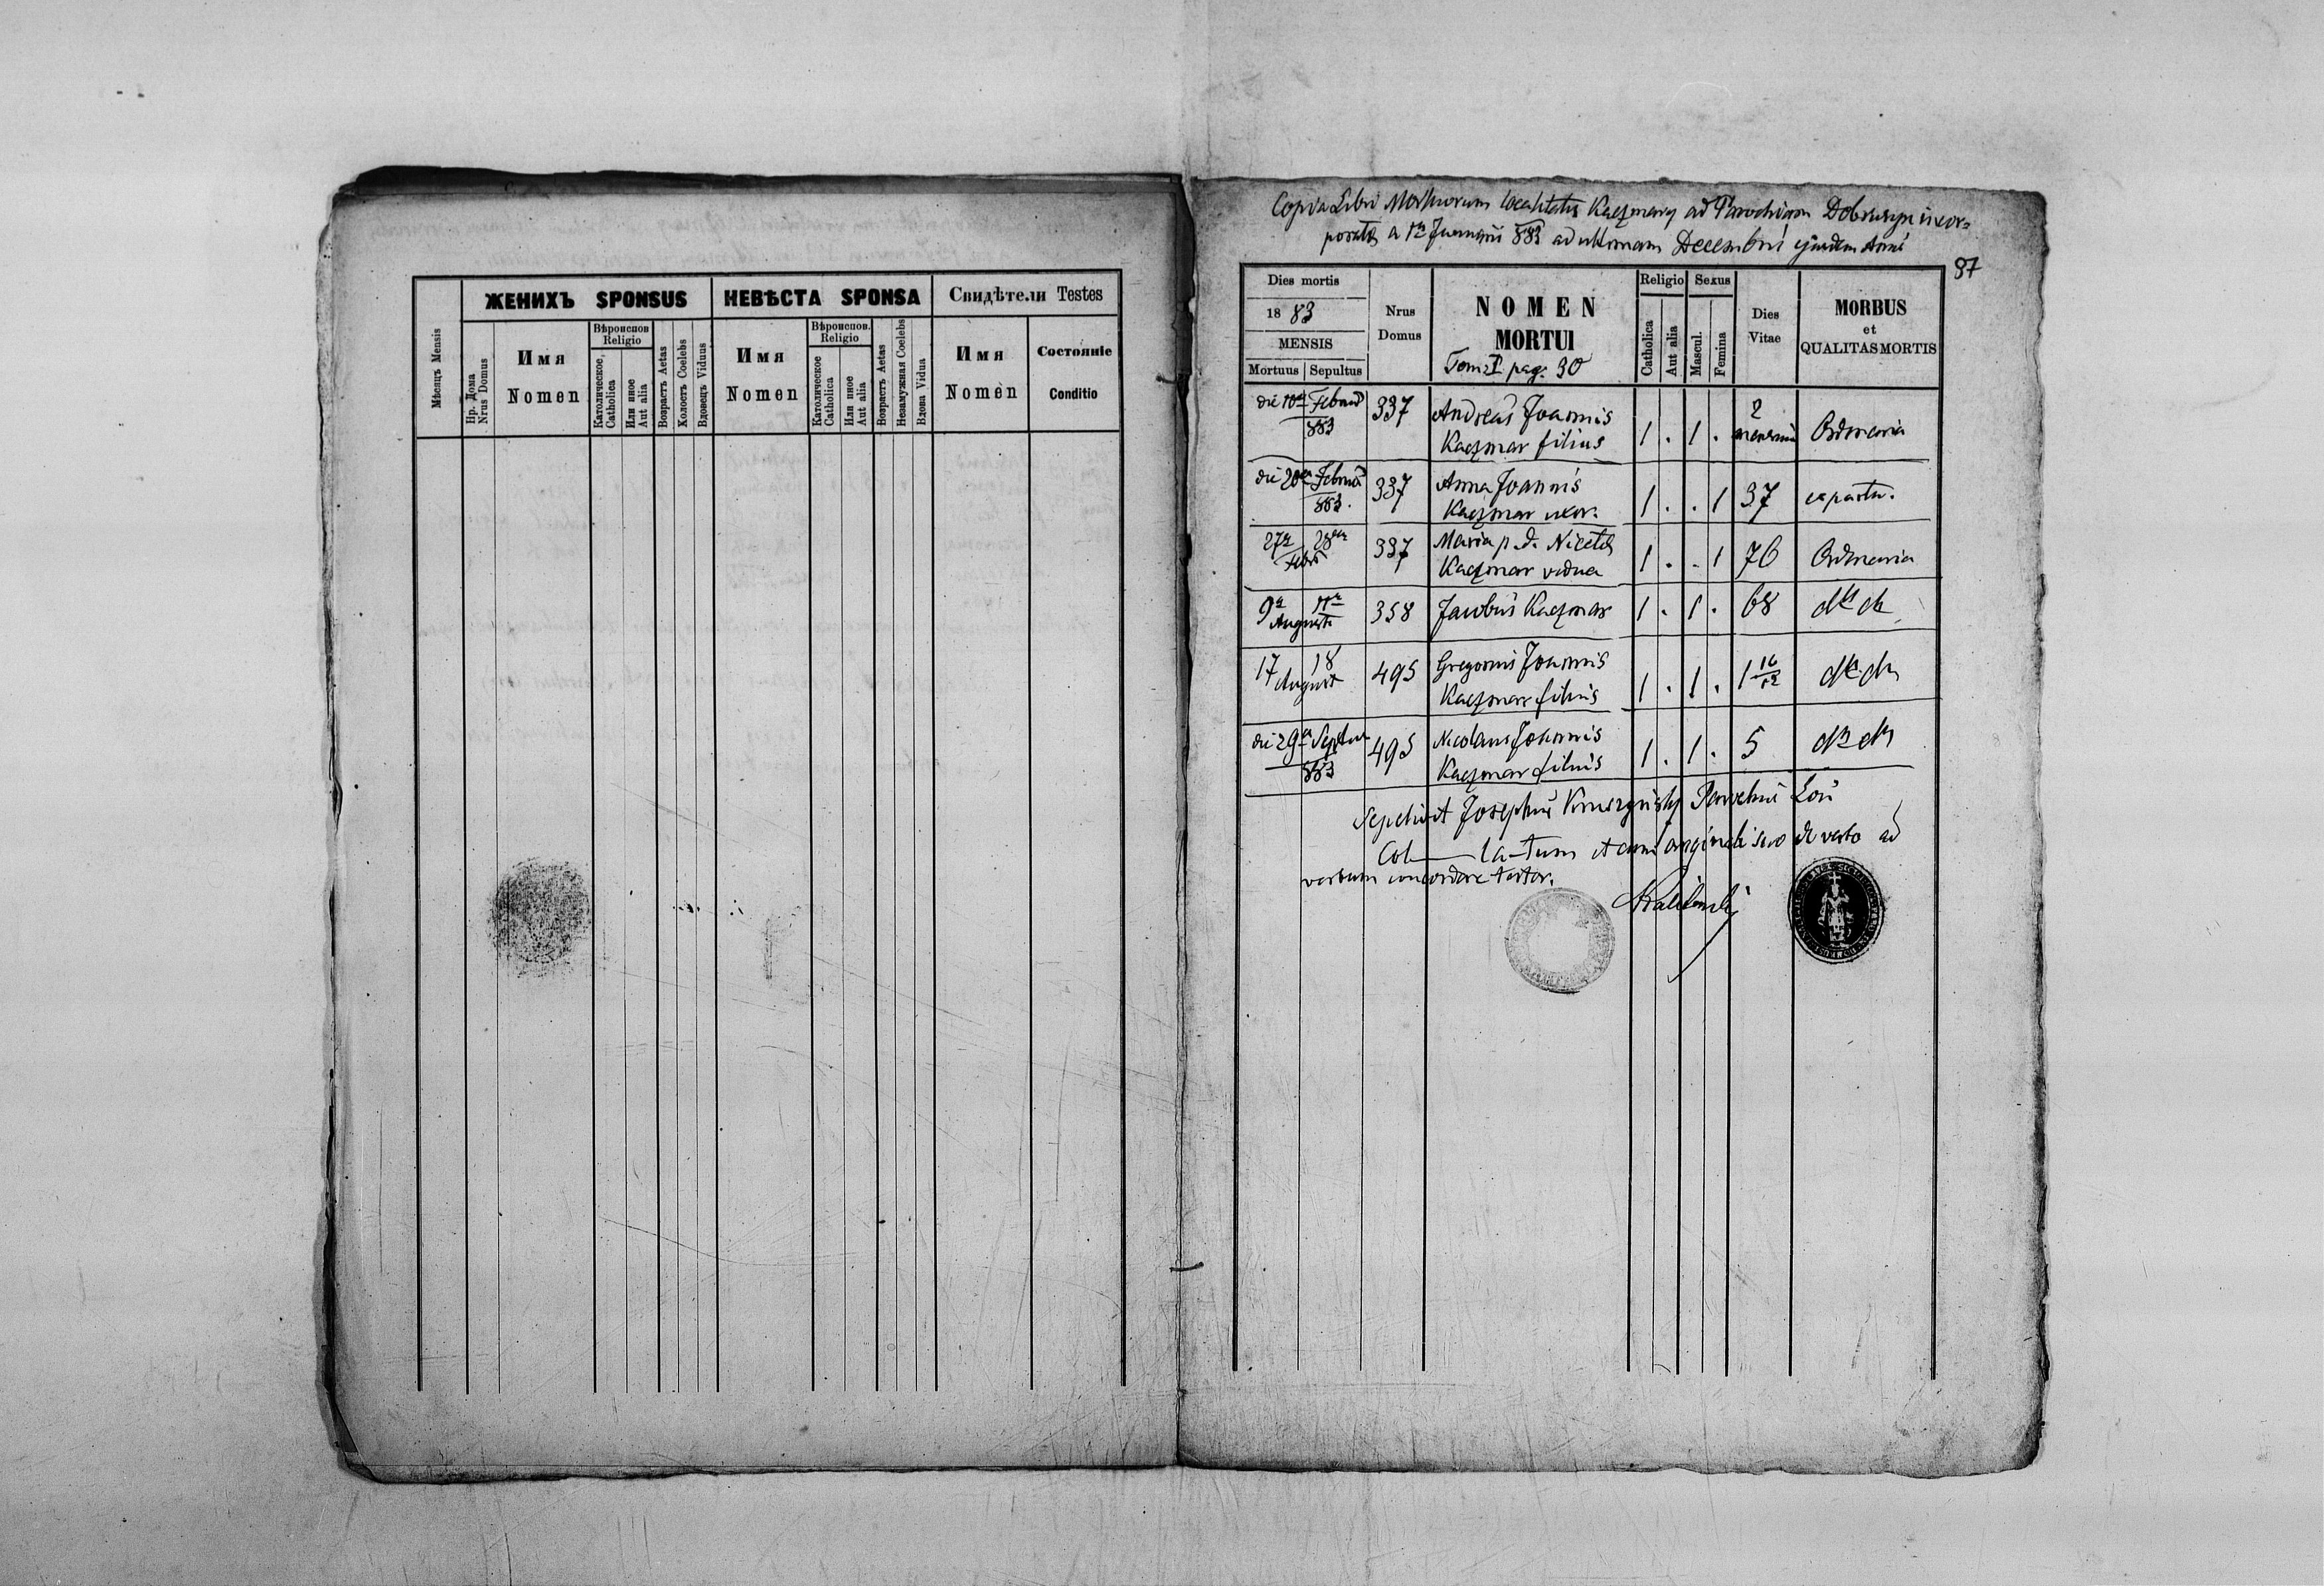 Мѣсяцъ Mensis
ЖЕНИХЪ SPONSUS
НЕВѢСТА SPONSA
Свидѣтели Testes
Нр. Дома
Nrus Domus
Имя
Nomen
Вѣроиспов
Religio
Католическое,
Catholica
Или иное
Aut alia
Возрастъ Aetas
Холостъ Coelebs
Вдовецъ Viduus
Имя
Nomen
Вѣроиспов.
Religio
Католическое
Catholica
Или иное
Aut alia
Возрастъ Aetas
Незамужная Coelebs
Вдова Vidua
Имя
Nomen
Состояніе
Conditio
Copia Libri Mortuorum localitatis Kaczmary ad Parochiam Dobrusyn incor=
porata a 1ma Januarii 883 ad ultimam Decembris ejusdem Anni
87
Dies mortis
1883
MENSIS
Mortuus Sepultus
Nrus
Domus
NOMEN
MORTUI
Tom I pag. 30
Religio
Catholica
Aut alia
Sexus
Mascul.
Femina
Dies
Vitae
MORBUS
et
QUALITAS MORTIS
die 10a Februar 337 Andreas Joannis 2
883 Kaczmar filius 1 . 1 . mensium Ordinaria
die 20a Februar 337 Anna Joannis 1 . . 1 37 ex partu.
883. Kaczmar uxor.
27a 28a 337 Maria p. d. Niceta 1 . . 1 76 Ordinaria
Febr Kaczmar vidua
9a 11a 358 Jacobus Kaczmar 1 . 1 . 68
Augusti
17 18 495 Gregorius Joannis
August Kaczmar filius 1 . 1 . 1
die 29a Septem 495 Nicolaus Joannis 1 . 1 . 5
883 Kaczmar filius
Sepelivit Josephus Parochus
tum et cum originali suo de verbo ad
verbum concordare testor.